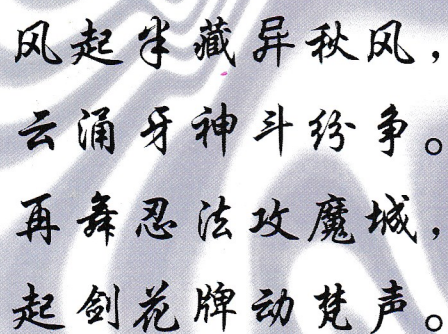 风起半藏异秋风，
云涌牙神斗纷争。
再舞忍法攻魔城，
起剑花牌动梵声。